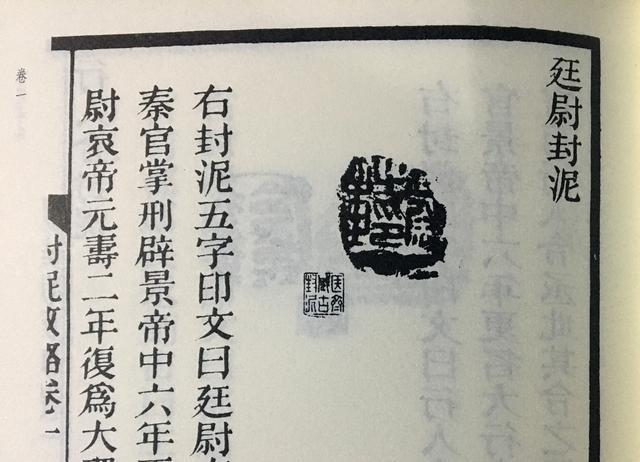 廷尉封泥
右封泥五字印文曰廷尉
秦官掌刑辟景帝中六年
尉哀帝元壽二年復爲大
封泥攷略卷一
卷一